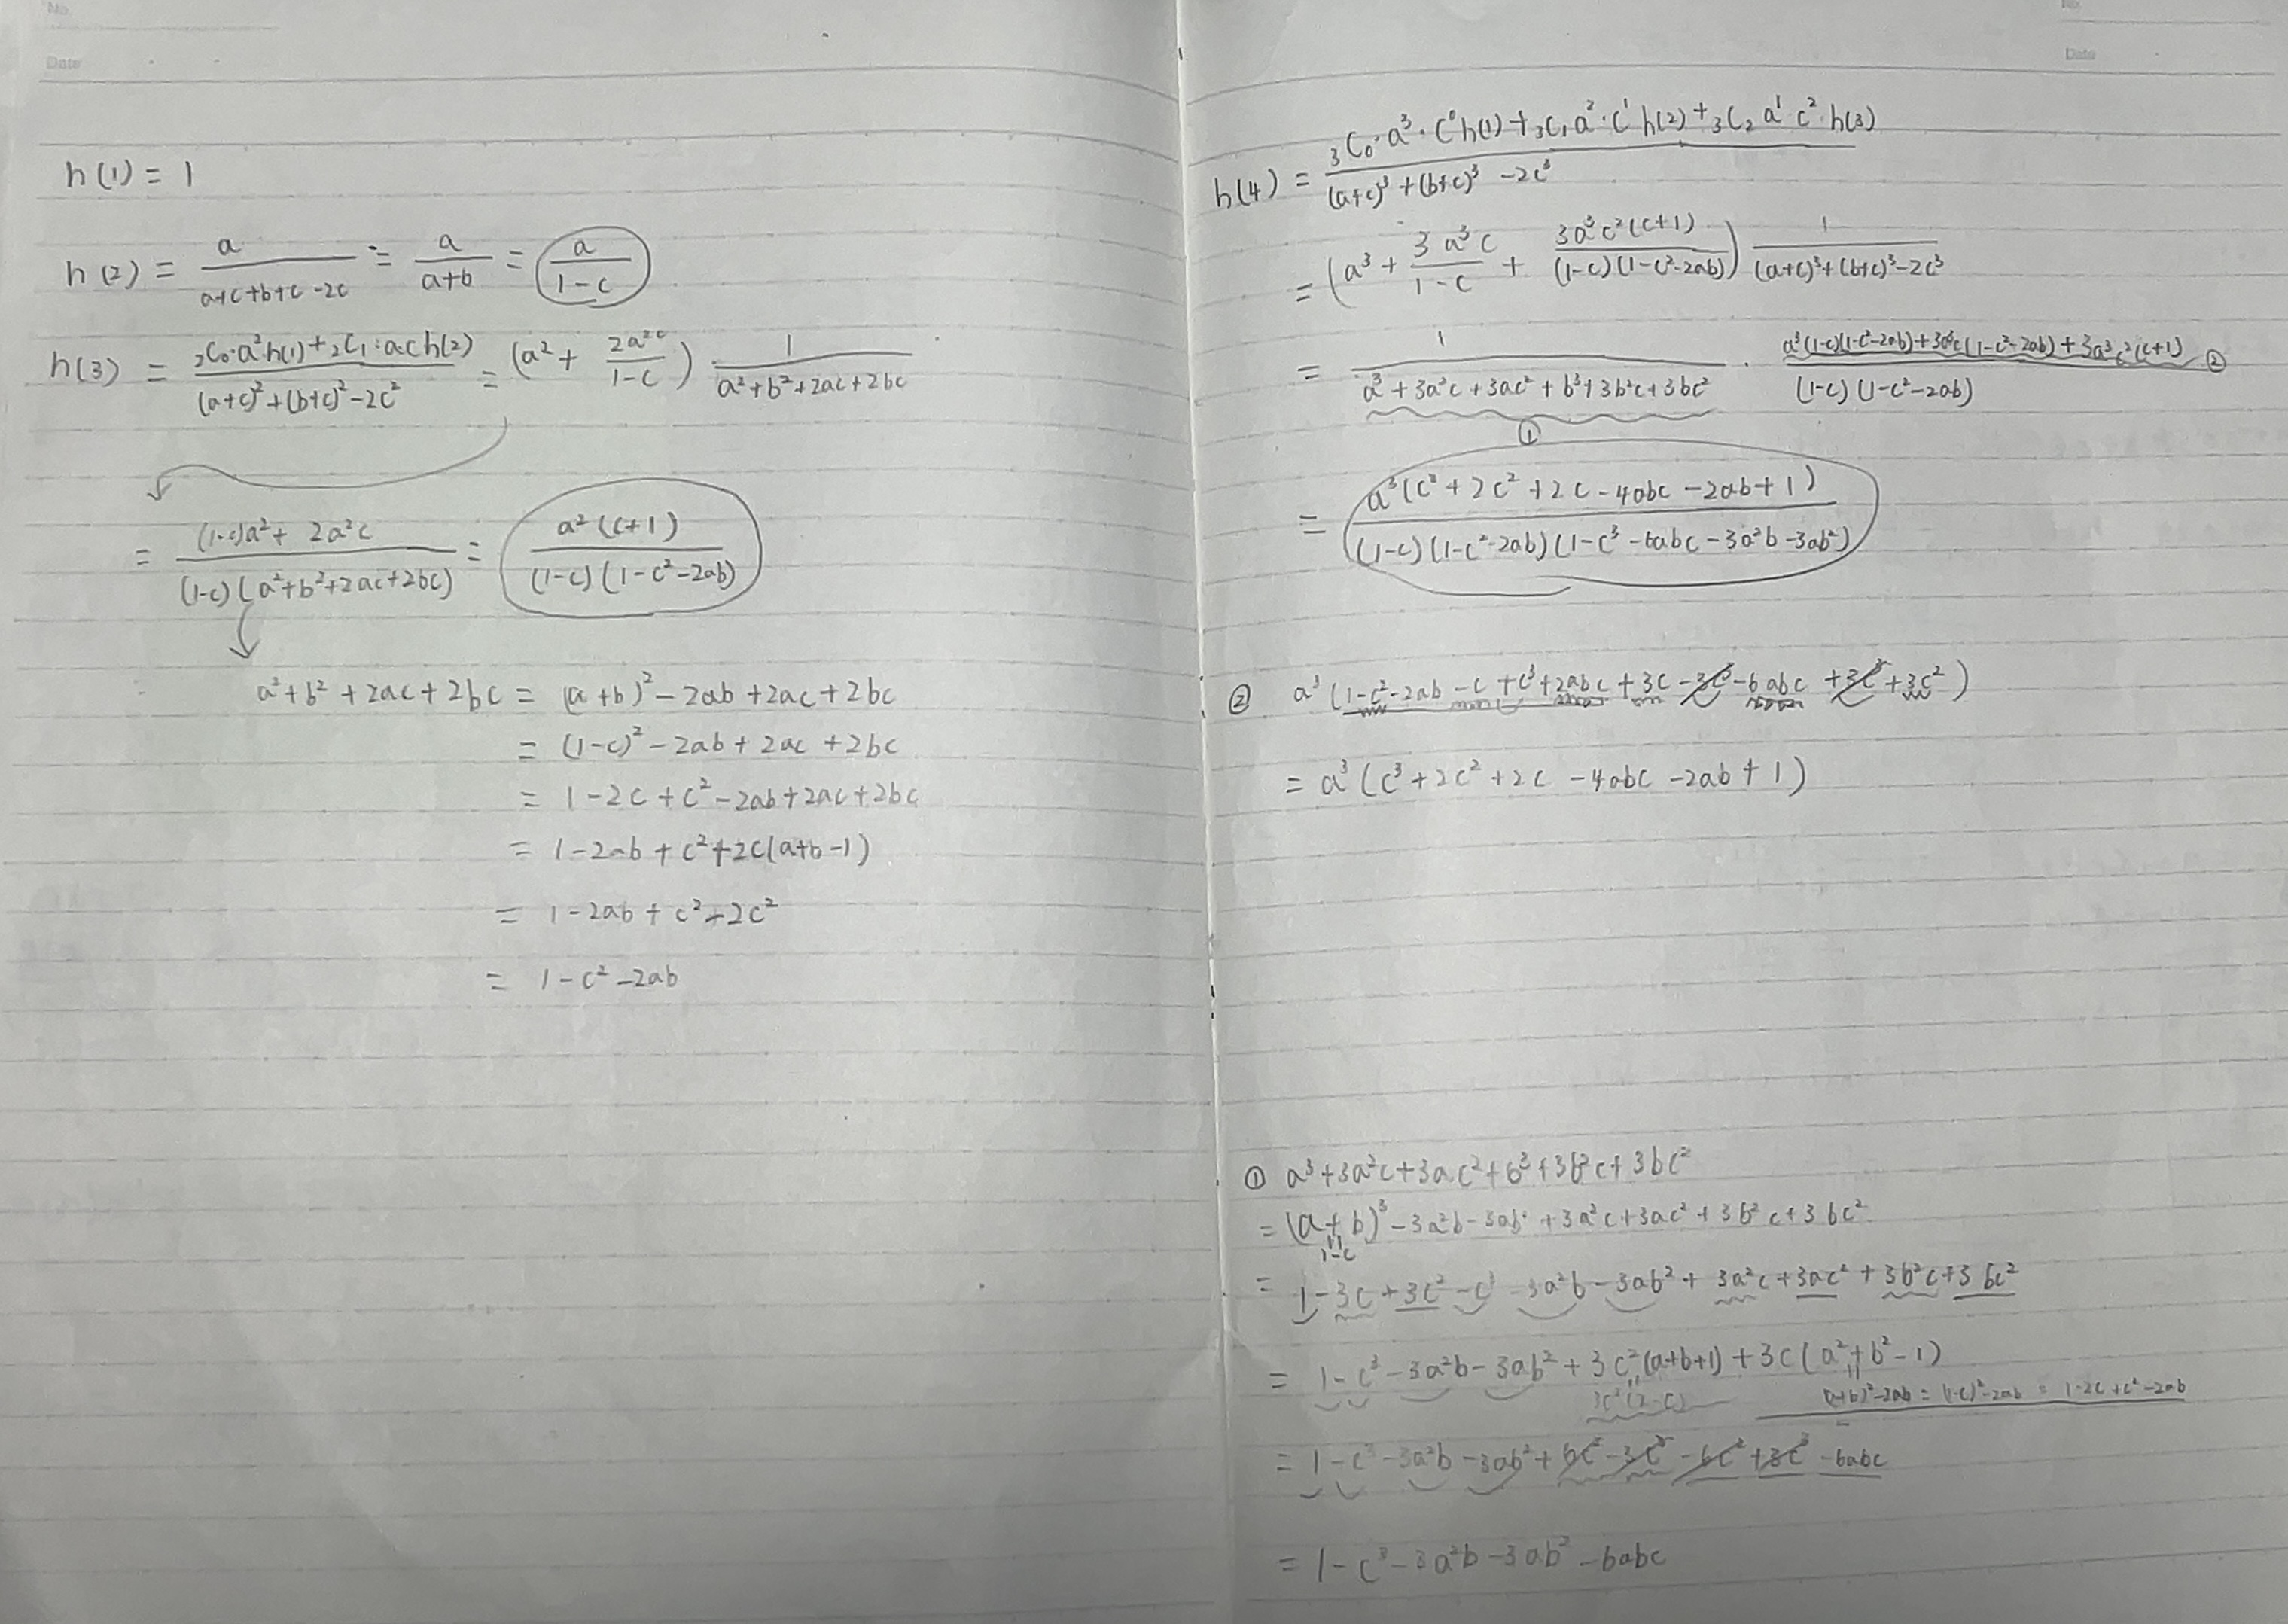 No.
Date
h(1) = 1
h(2) = a/(a+c+b+c-2c) = a/(a+b) = a/(1-c)
h(3) = (₂C₀·a²h(1)+₂C₁·ac h(2))/((a+c)²+(b+c)²-2c²) = (a² + 2a²c/(1-c)) 1/(a²+b²+2ac+2bc)
= ((1-c)a²+2a²c)/((1-c)(a²+b²+2ac+2bc)) = a²(c+1)/((1-c)(1-c²-2ab))
a²+b²+2ac+2bc = (a+b)²-2ab+2ac+2bc
= (1-c)²-2ab+2ac+2bc
= 1-2c+c²-2ab+2ac+2bc
= 1-2ab+c²+2c(a+b-1)
= 1-2ab+c²-2c²
= 1-c²-2ab
No.
Date
h(4) = (₃C₀·a³·c⁰h(1)+₃C₁a²·c¹h(2)+₃C₂a¹c²·h(3))/((a+c)³+(b+c)³-2c³)
= (a³ + 3a³c/(1-c) + 3a³c²(c+1)/((1-c)(1-c²-2ab))) 1/((a+c)³+(b+c)³-2c³)
= 1/(a³+3a²c+3ac²+b³+3b²c+3bc²) · (a³(1-c)(1-c²-2ab)+3a³c(1-c²-2ab)+3a³c²(c+1))/((1-c)(1-c²-2ab)) ②
①
= a³(c³+2c²+2c-4abc-2ab+1)/((1-c)(1-c²-2ab)(1-c³-6abc-3a²b-3ab²))
② a³(1-c²-2ab-c+c³+2abc+3c-3c³-6abc+3c³+3c²)
= a³(c³+2c²+2c-4abc-2ab+1)
① a³+3a²c+3ac²+b³+3b²c+3bc²
= (a+b)³-3a²b-3ab²+3a²c+3ac²+3b²c+3bc²
1-c
= 1-3c+3c²-c³-3a²b-3ab²+3a²c+3ac²+3b²c+3bc²
= 1-c³-3a²b-3ab²+3c²(a+b+1)+3c(a²+b²-1)
3c²(2-c) (a+b)²-2ab=(1-c)²-2ab=1-2c+c²-2ab
= 1-c³-3a²b-3ab²+6c²-3c³-6c²+3c³-6abc
= 1-c³-3a²b-3ab²-6abc